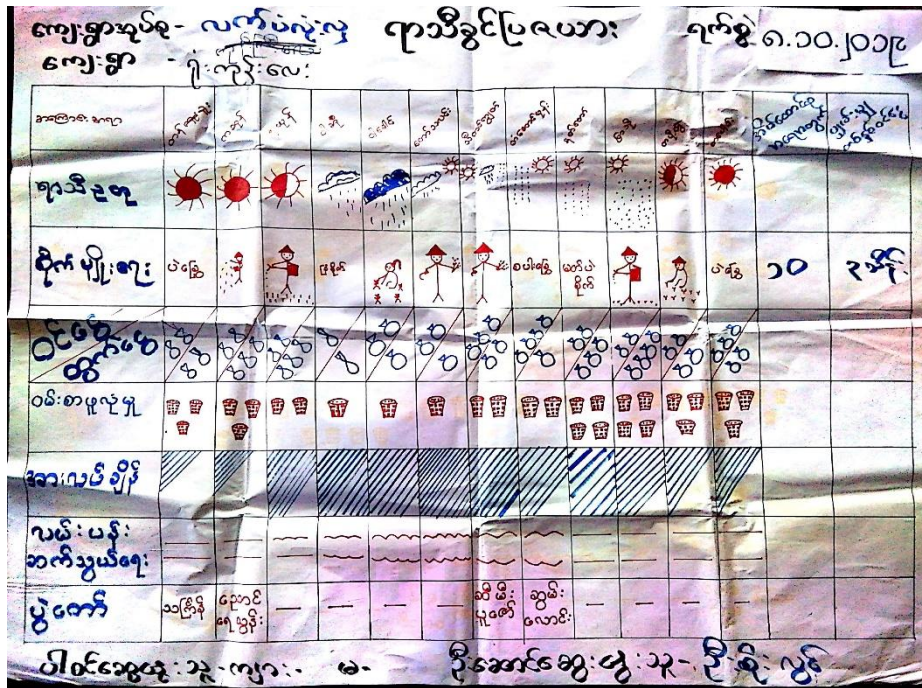 ကျေးရွာအုပ်စု - လက်ပံလုံးလှ ရာသီခွင်ပြဇယား ရက်စွဲ ၈.၁၀.၂၀၁၉
ကျေးရွာ - ရုံးကုန်းလေး
အကြောင်းအရာ တန်ခူး ကဆုန် နယုန် ဝါဆို ဝါခေါင် တော်သလင်း သီတင်းကျွတ် တန်ဆောင်မုန်း နတ်တော် ပြာသို တပို့တွဲ တပေါင်း
ရာသီဥတု
စိုက်ပျိုးရေး ပဲခြွေ စပါးခြွေ မတ်ပဲစိုက် ပဲခြွေ ၁၀ ၃သိန်း
ဝင်ငွေ
ထွက်ငွေ
ဝမ်းစာဖူလုံမှု
အားလပ်ချိန်
လမ်းပန်း
ဆက်သွယ်ရေး
ပွဲတော် သင်္ကြန် ညောင်ရေသွန်း — — — — ဆီမီးပူဇော် ဆွမ်းလောင်း — — — —
ပါဝင်ဆွေးနွေးသူ - ကျား - မ - ဦးဆောင်ဆွေးနွေးသူ - ဦးစိုးလွင်